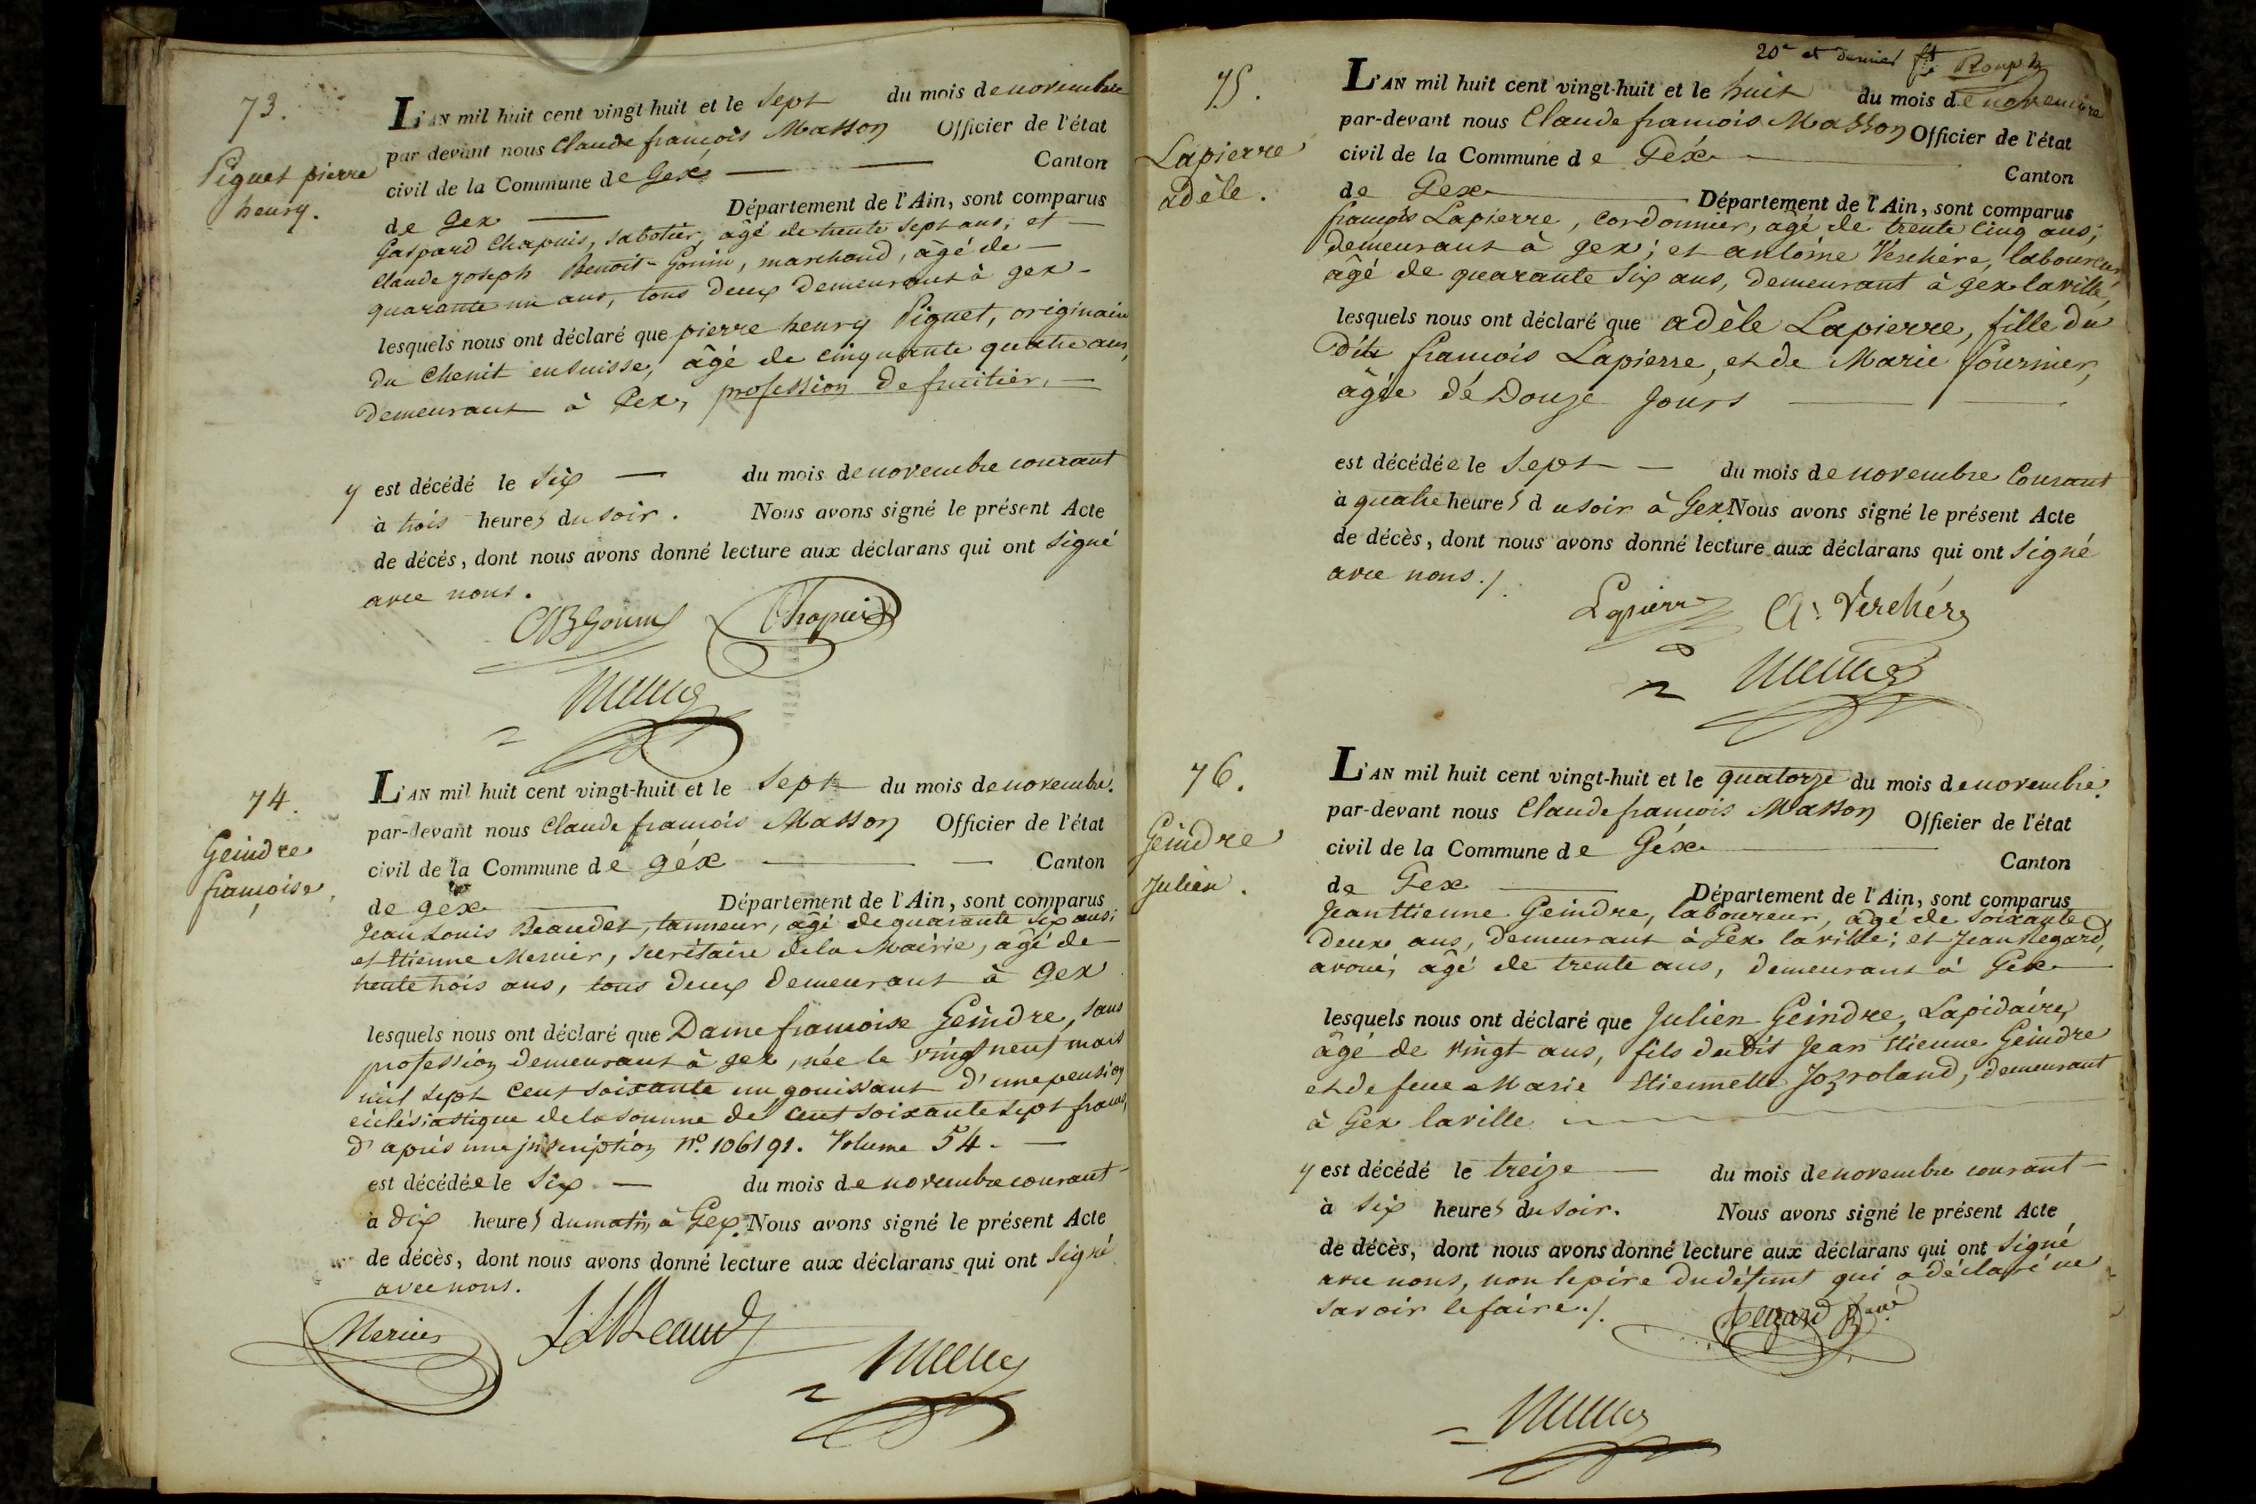 73.
Piguet pierre
henry.
L'AN mil huit cent vingt-huit et le Sept du mois de novembre
par-devant nous Claude françois Masson Officier de l'état
civil de la Commune de Gex Canton
de Gex Département de l'Ain, sont comparus
Gaspard Chapuis, sabotier, âgé de trente sept ans, et
Claude Joseph Benoit-Gonin, marchand, âgé de
quarante un ans, tous deux demeurant à gex
lesquels nous ont déclaré que pierre henry Piguet, originaire
du Chenit en suisse, âgé de cinquante quatre ans,
demeurant à Gex, profession de fruitier,
y est décédé le Six du mois de novembre courant
à trois heures du soir. Nous avons signé le présent Acte
de décés, dont nous avons donné lecture aux déclarans qui ont signé
avec nous.
Chapuis
74.
Geindre
françoise.
L'AN mil huit cent vingt-huit et le Sept du mois de novembre.
par-devant nous Claude françois Masson Officier de l'état
civil de la Commune de géx Canton
de gex Département de l'Ain, sont comparus
Jean Louis Beaudet, tanneur, âgé de quarante six ans;
et Etienne Mercier, secrétaire de la Mairie, âgé de
trente trois ans, tous deux demeurant à Gex
lesquels nous ont déclaré que Dame françoise Geindre, sans
profession demeurant à gex, née le vingt neuf mars
mil sept cent soixante un gouissant d'une pension
éclésiastique de la somme de cent soixante sept francs,
d'après une inscription N°. 106191. Volume 54.
est décédée le Six du mois de novembre courant
à dix heures du matin, à Gex. Nous avons signé le présent Acte
de décès, dont nous avons donné lecture aux déclarans qui ont Signé
avec nous.
Mercier
J L Beaudet
20e et dernier ft
75.
Lapierre
adèle.
L'AN mil huit cent vingt-huit et le huit du mois de novembre
par-devant nous Claude françois Masson Officier de l'état
civil de la Commune de Géx Canton
de Gex Département de l'Ain, sont comparus
françois Lapierre, cordonnier, âgé de trente cinq ans;
demeurant à gex; et antoine Verchère, laboureur,
âgé de quarante six ans, demeurant à gex la ville,
lesquels nous ont déclaré que adèle Lapierre, fille du
dit françois Lapierre, et de Marie fournier,
âgée dé Douze Jours
est décédée le Sept du mois de novembre Courant
à quatre heures du soir à Gex Nous avons signé le présent Acte
de décès, dont nous avons donné lecture aux déclarans qui ont signé
avec nous./.
Lapierre A. Verchère
76.
Geindre
Julien.
L'AN mil huit cent vingt-huit et le quatorze du mois de novembre.
par-devant nous Claude françois Masson Officier de l'état
civil de la Commune de Géx Canton
de Gex Département de l'Ain, sont comparus
Jean Etienne Geindre, laboureur, âgé de soixante
deux ans, demeurant à Gex la ville; et Jean Regard,
avoué, âgé de trente ans, demeurant à Gex
lesquels nous ont déclaré que Julien Geindre, Lapidaire,
âgé de vingt ans, fils du Dit Jean Etienne Geindre
et de feue Marie Etiennette Jozroland, demeurant
à Gex la ville
y est décédé le treize du mois de novembre courant
à six heures du soir. Nous avons signé le présent Acte
de décès, dont nous avons donné lecture aux déclarans qui ont signé
avec nous, non le père du défunt qui a déclaré ne
savoir le faire./.
Regard